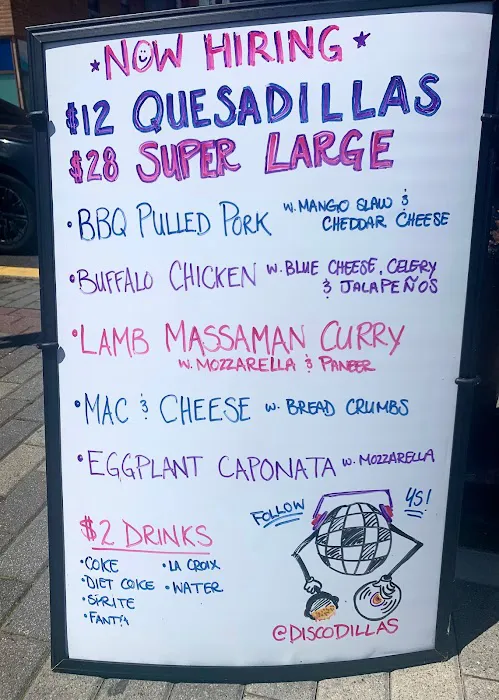 NOW HIRING
$12 QUESADILLAS
$28 SUPER LARGE
• BBQ PULLED PORK W. MANGO SLAW &
CHEDDAR CHEESE
• BUFFALO CHICKEN W. BLUE CHEESE, CELERY
& JALAPEÑOS
• LAMB MASSAMAN CURRY
W. MOZZARELLA & PANEER
• MAC & CHEESE W. BREAD CRUMBS
• EGGPLANT CAPONATA W. MOZZARELLA
FOLLOW YS!
$2 DRINKS
• COKE • LA CROIX
• DIET COKE • WATER
• SPRITE
• FANTA
@DISCODILLAS